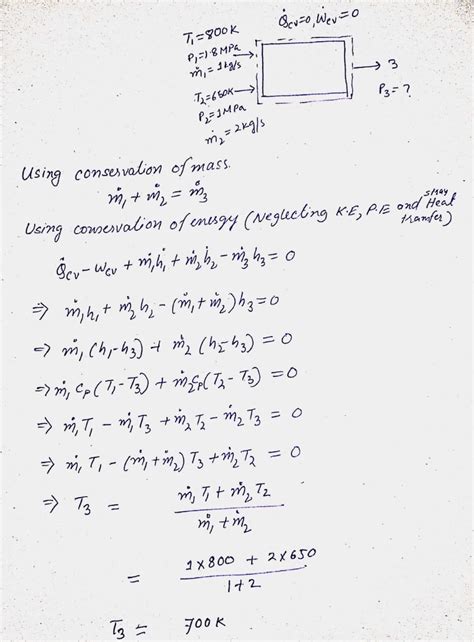 T₁=800K
Q̇cv=0, Ẇcv=0
P₁=1.8 MPa
ṁ₁ = 1kg/s
3
T₂=650K
P₃=?
P₂=1MPa
ṁ₂ = 2kg/s
Using conservation of mass.
ṁ₁ + ṁ₂ = ṁ₃
Using conservation of energy (Neglecting K.E, P.E and stray Heat transfer)
Q̇cv - Wcv + ṁ₁h₁ + ṁ₂h₂ - ṁ₃h₃ = 0
⇒ ṁ₁h₁ + ṁ₂h₂ - (ṁ₁+ṁ₂)h₃ = 0
⇒ ṁ₁(h₁-h₃) + ṁ₂(h₂-h₃) = 0
⇒ ṁ₁cp(T₁-T₃) + ṁ₂cp(T₂-T₃) = 0
⇒ ṁ₁T₁ - ṁ₁T₃ + ṁ₂T₂ - ṁ₂T₃ = 0
⇒ ṁ₁T₁ - (ṁ₁+ṁ₂)T₃ + ṁ₂T₂ = 0
⇒ T₃ = ṁ₁T₁ + ṁ₂T₂ / ṁ₁ + ṁ₂
= 1×800 + 2×650 / 1+2
T₃ = 700K